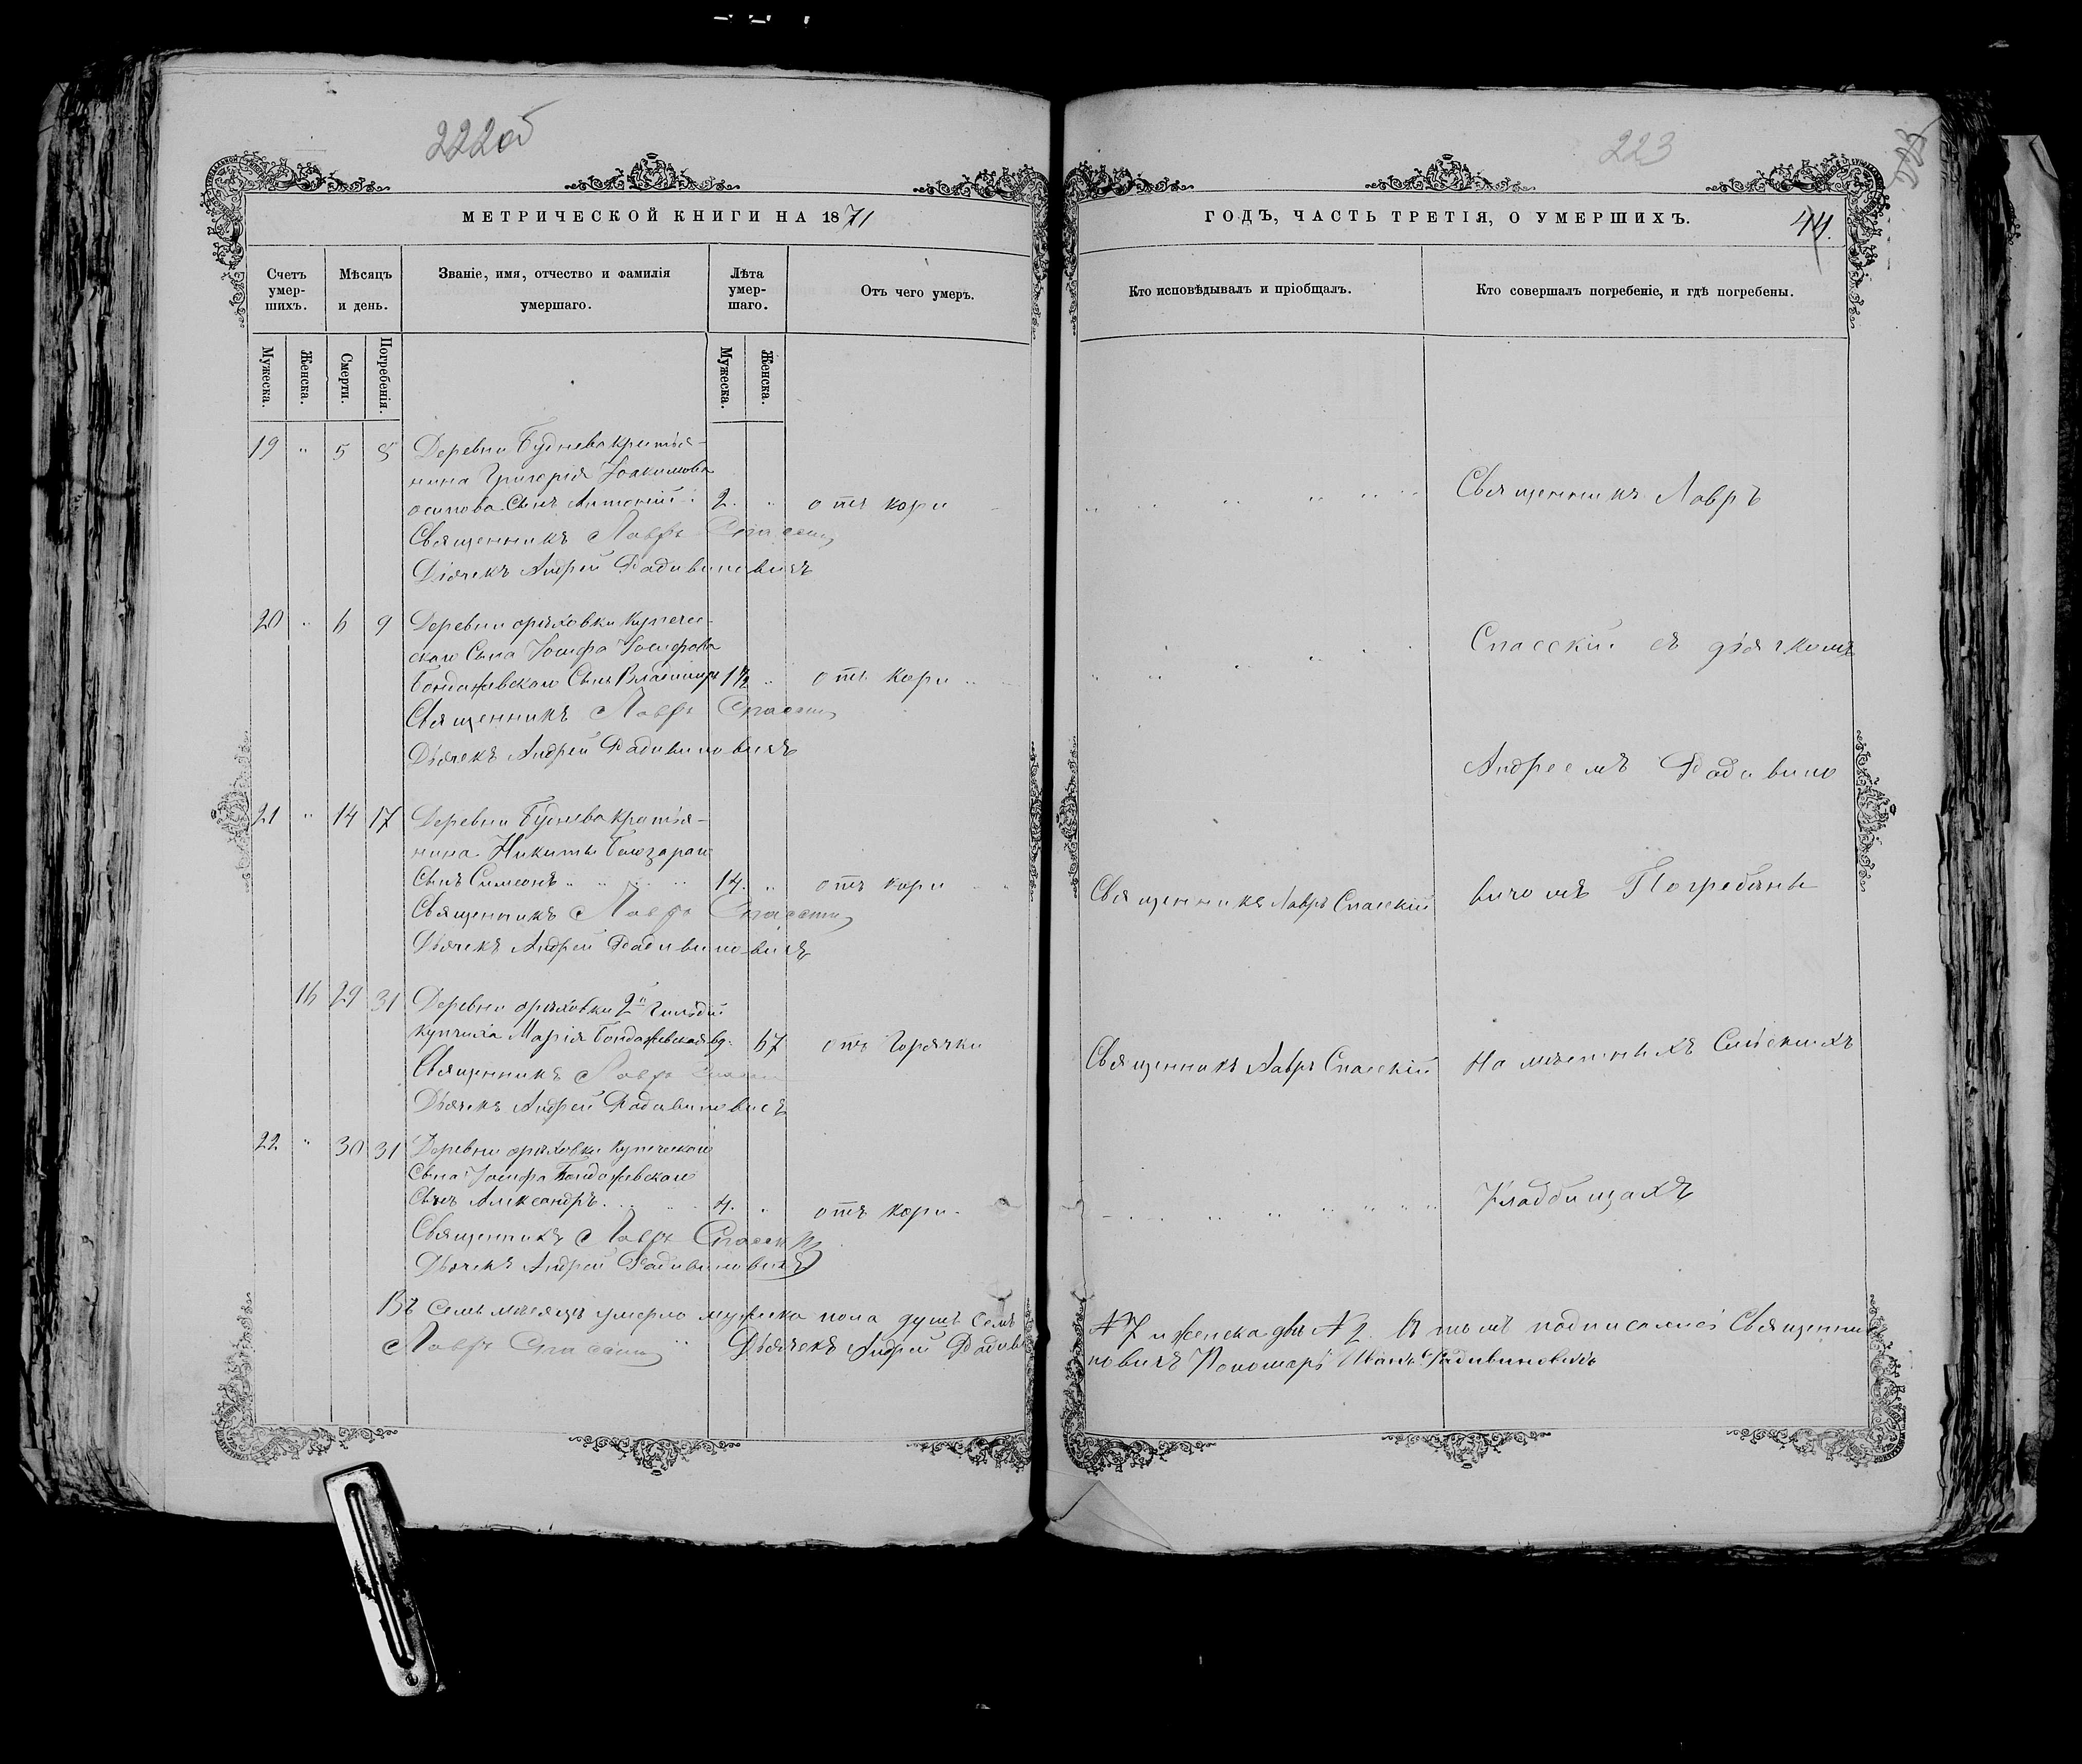 222об
МЕТРИЧЕСКОЙ КНИГИ НА 1871
Счетъ умер-шихъ.
Мѣсяцъ и день.
Званіе, имя, отчество и фамилія умершаго.
Лѣта умер-шаго.
Отъ чего умеръ.
Мужеска.
Женска.
Смерти.
Погребенія.
Мужеска.
Женска.
19 " 5 8 Деревни Буднева крестья-
нина Григорія Іоакимова
осипова Сынъ Антоній 2. " отъ кори
Священникъ Лавръ Спасскій
Дьячекъ Андрей Радивиновичъ
20 " 6 9 Деревни орѣховки купече-
скаго Сына Іосифа Іосифова
Сынъ Владиміръ 1½ " отъ кори
Священникъ Лавръ Спасскій
Дьячекъ Андрей Радивиновичъ
21 " 14 17 Деревни Буднева крестья-
нина Никиты
Сынъ Симеонъ 14. " отъ кори
Священникъ Лавръ Спасскій
Дьячекъ Андрей Радивиновичъ
16 29 31 Деревни орѣховки 2й Гильдіи
купчиха Марія вд. 67 отъ Горячки
Священникъ Лавръ Спасскій
Дьячекъ Андрей Радивиновичъ
22 " 30 31 Деревни орѣховки купеческаго
Сына Іосифа
Сынъ Александръ 4. " отъ кори
Священникъ Лавръ Спасскій
Дьячекъ Андрей Радивиновичъ
Въ Семъ мѣсяцѣ умерло мужска пола душъ Семь
Лавръ Спасскій Дьячекъ Андрей Радиви
223
ГОДЪ, ЧАСТЬ ТРЕТІЯ, О УМЕРШИХЪ.
44.
Кто исповѣдывалъ и пріобщалъ.
Кто совершалъ погребеніе, и гдѣ погребены.
Священникъ Лавръ
Спасскій съ дьячкомъ
Андреемъ Радивино
Священникъ Лавръ Спасскій
вичомъ Погребены
Священникъ Лавръ Спасскій
На мѣстныхъ Сельскихъ
Кладбищахъ
№ 7 и женска двѣ № 2. Въ томъ подписались Священник
новичъ Пономарь Иванъ Радивиновичъ